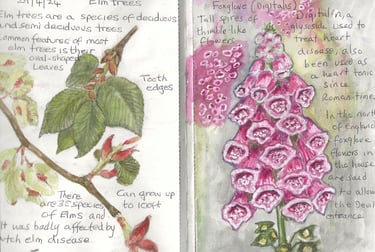 21/4/24 Elm trees
Elm trees are a species of deciduous
and semi decidous trees
Common features of most
elm trees is their
oval-shaped
Leaves
Tooth
edges
There
are 35 species
of Elms and
It was badly affected by
dutch elm disease
Can grow up
to 100ft
Foxglove (Digitalis)
Tall spires of
thimble-like
flowers
Digitalin, a
glucoside used to
treat heart
disease, also
been used as
a heart tonic
since
Roman time.
In the north
of England
foxglove
flowers in
the house
are said
to allow
the Devil
entrance